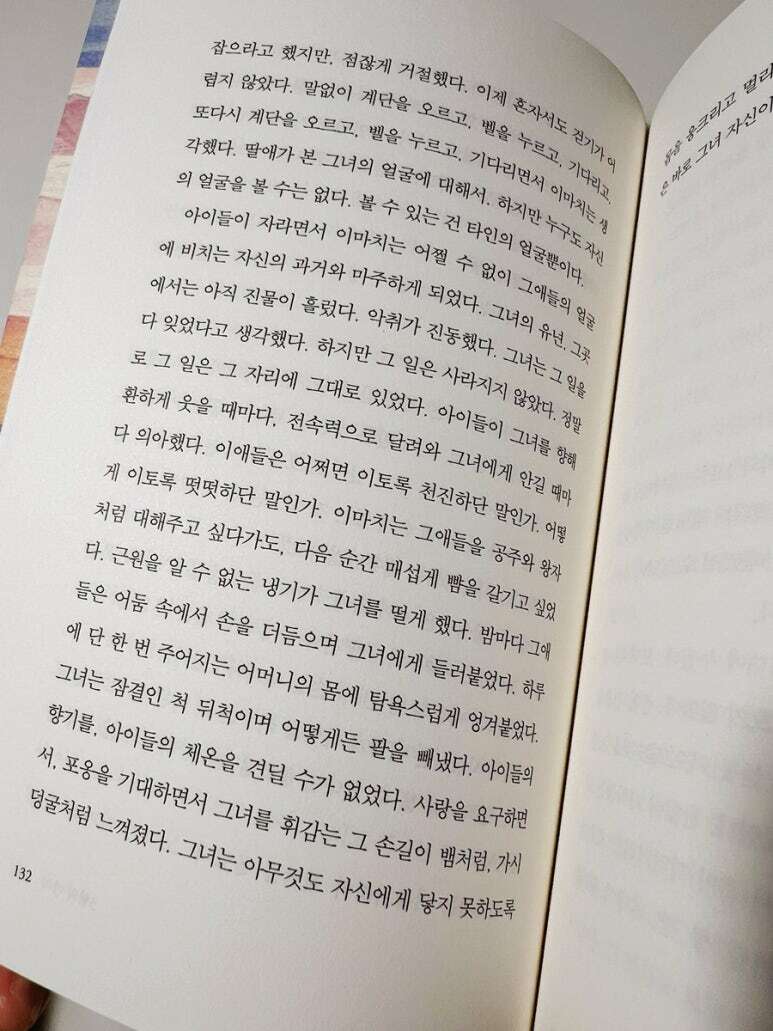 잡으라고 했지만, 점잖게 거절했다. 이제 혼자서도 걷기가 어
렵지 않았다. 말없이 계단을 오르고, 벨을 누르고, 기다리고,
또다시 계단을 오르고, 벨을 누르고, 기다리면서 이마치는 생
각했다. 딸애가 본 그녀의 얼굴에 대해서. 하지만 누구도 자신
의 얼굴을 볼 수는 없다. 볼 수 있는 건 타인의 얼굴뿐이다.
아이들이 자라면서 이마치는 어쩔 수 없이 그애들의 얼굴
에 비치는 자신의 과거와 마주하게 되었다. 그녀의 유년. 그곳
에서는 아직 진물이 흘렀다. 악취가 진동했다. 그녀는 그 일을
다 잊었다고 생각했다. 하지만 그 일은 사라지지 않았다. 정말
로 그 일은 그 자리에 그대로 있었다. 아이들이 그녀를 향해
환하게 웃을 때마다. 전속력으로 달려와 그녀에게 안길 때마
다 의아했다. 이애들은 어쩌면 이토록 천진하단 말인가. 어떻
게 이토록 떳떳하단 말인가. 이마치는 그애들을 공주와 왕자
처럼 대해주고 싶다가도, 다음 순간 매섭게 뺨을 갈기고 싶었
다. 근원을 알 수 없는 냉기가 그녀를 떨게 했다. 밤마다 그애
들은 어둠 속에서 손을 더듬으며 그녀에게 들러붙었다. 하루
에 단 한 번 주어지는 어머니의 몸에 탐욕스럽게 엉겨붙었다.
그녀는 잠결인 척 뒤척이며 어떻게든 팔을 빼냈다. 아이들의
향기를, 아이들의 체온을 견딜 수가 없었다. 사랑을 요구하면
서, 포옹을 기대하면서 그녀를 휘감는 그 손길이 뱀처럼, 가시
덩굴처럼 느껴졌다. 그녀는 아무것도 자신에게 닿지 못하도록
132
웅크리고 멀리
은 바로 그녀 자신이